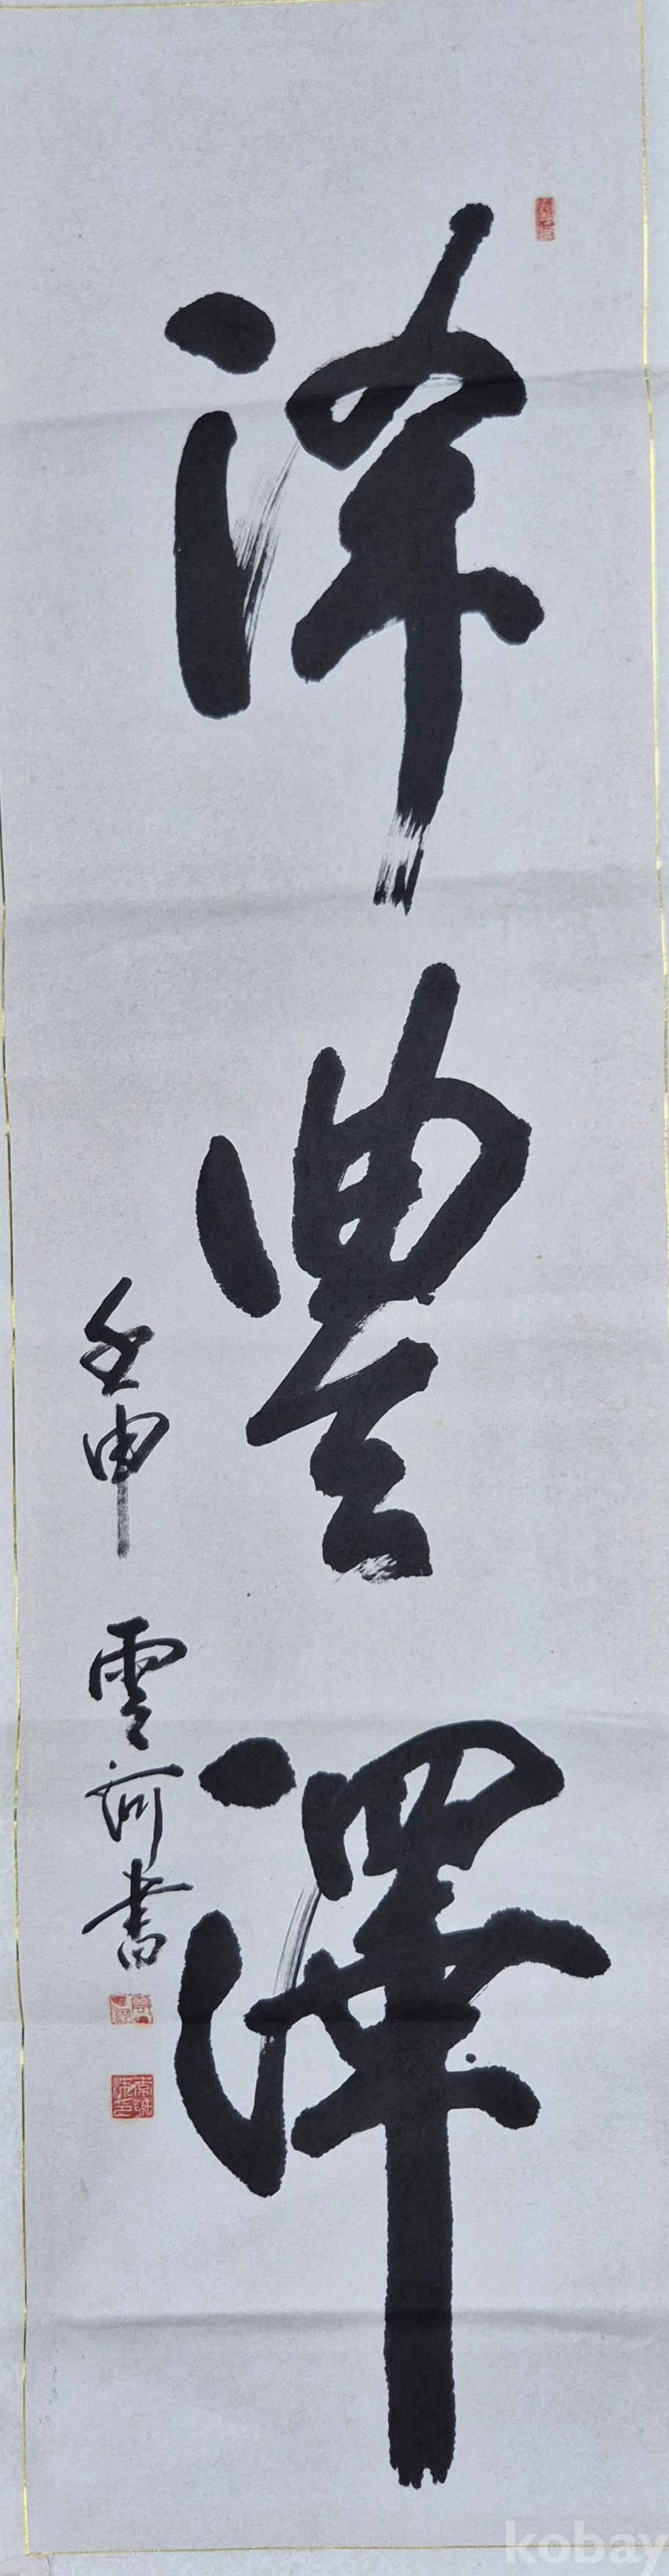 豊澤
壬申 雲河書
kobay